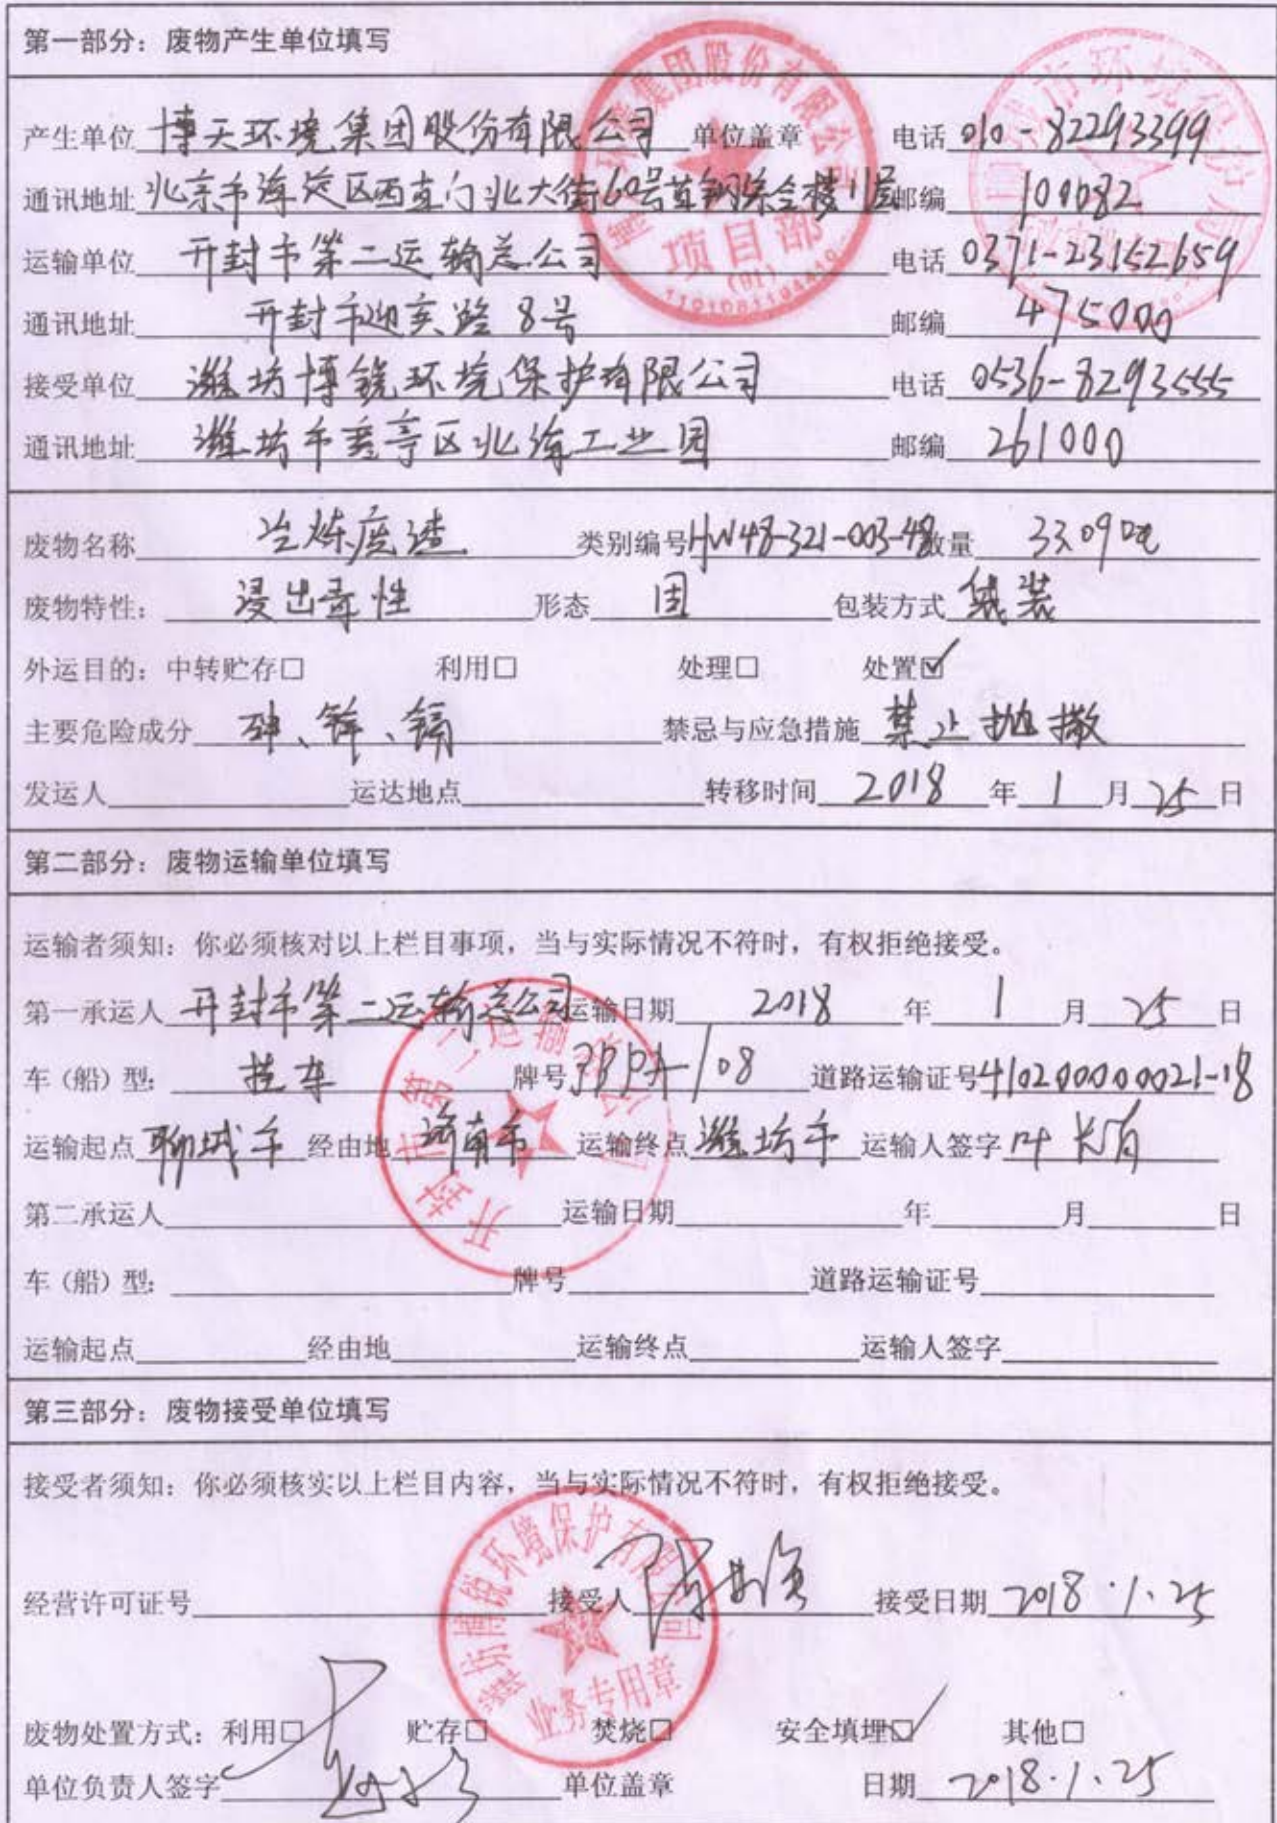 第一部分：废物产生单位填写
产生单位 博天环境集团股份有限公司 单位盖章 电话 010-82293399
通讯地址 北京市海淀区西直门北大街60号首钢综合楼11层 邮编 100082
运输单位 开封市第二运输总公司 电话 0371-23152659
通讯地址 开封市迎宾路8号 邮编 475000
接受单位 潍坊博锐环境保护有限公司 电话 0536-8293555
通讯地址 潍坊市 区北 工业园 邮编 261000
废物名称 冶炼废渣 类别编号 HW48-321-003-48 数量 33.09吨
废物特性：浸出毒性 形态 固 包装方式 袋装
外运目的：中转贮存□ 利用□ 处理□ 处置☑
主要危险成分 砷、锌、镉 禁忌与应急措施 禁止抛撒
发运人 运达地点 转移时间 2018 年 1 月 25 日
第二部分：废物运输单位填写
运输者须知：你必须核对以上栏目事项，当与实际情况不符时，有权拒绝接受。
第一承运人 开封市第二运输总公司 运输日期 2018 年 1 月 25 日
车（船）型：挂车 牌号 道路运输证号 410200000021-18
运输起点 聊城市 经由地 济南市 运输终点 潍坊市 运输人签字
第二承运人 运输日期 年 月 日
车（船）型： 牌号 道路运输证号
运输起点 经由地 运输终点 运输人签字
第三部分：废物接受单位填写
接受者须知：你必须核实以上栏目内容，当与实际情况不符时，有权拒绝接受。
经营许可证号 接受人 接受日期 2018.1.25
废物处置方式：利用□ 贮存□ 焚烧□ 安全填埋☑ 其他□
单位负责人签字 单位盖章 日期 2018.1.25
博天环境集团股份有限公司
项目部
(01)
聊城市环境保护局
开封市第二运输总公司
潍坊博锐环境保护有限公司
业务专用章